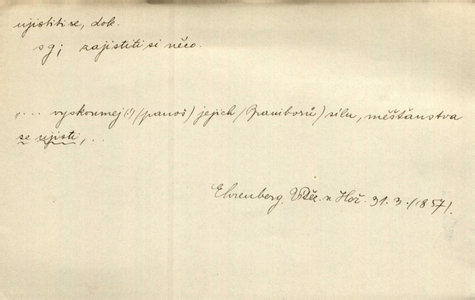 ujistiti se, dok.
sg; zajistiti si něco.
"... vyskoumej (!/panoš) jejich /Braniborů/ sílu, měšťanstva
se ujisti, ..
Ehrenberg. v Hoř. 31. 3. (1857).